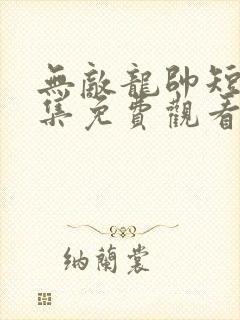 無敵龍帥短
集免費觀看
納蘭裳